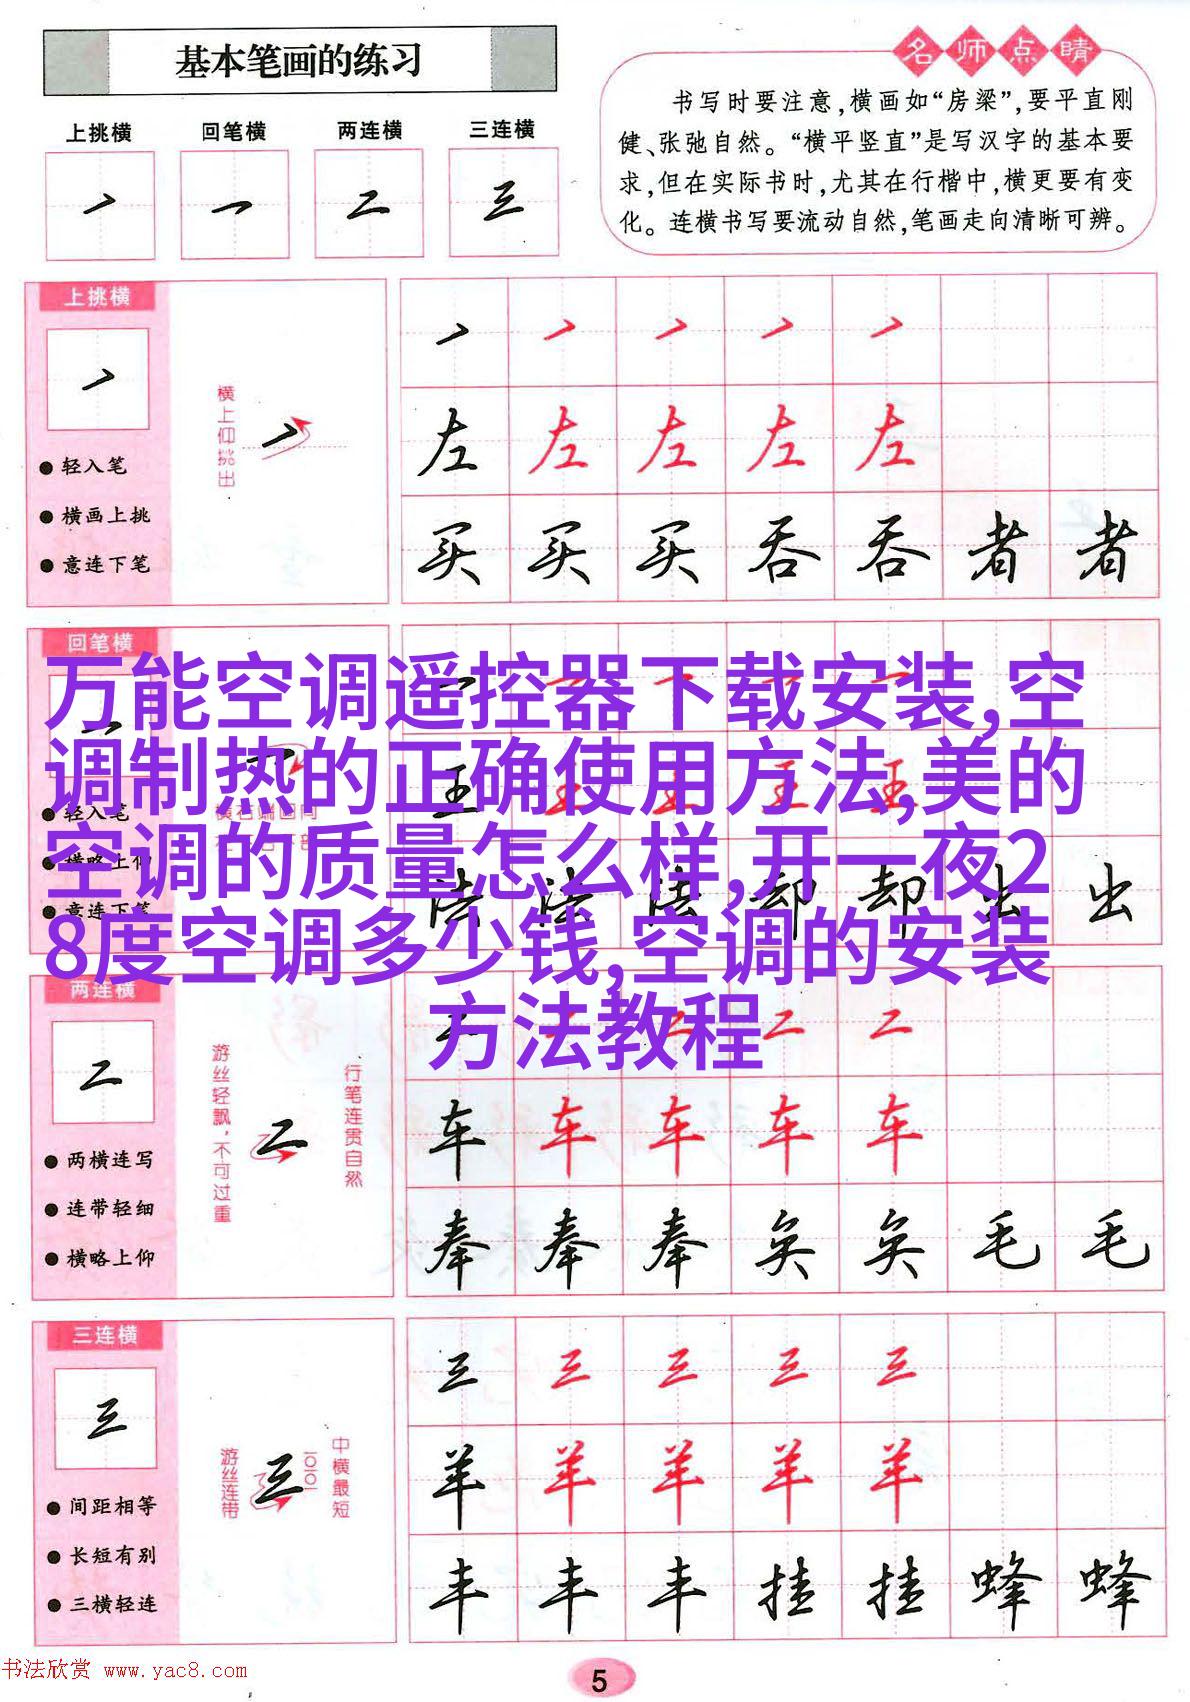 基本笔画的练习
名师点睛
上挑横 回笔横 两连横 三连横
书写时要注意,横画如“房梁”,要平直刚
健、张弛自然。“横平竖直”是写汉字的基本要
求,但在实际书时,尤其在行楷中,横更要有变
化。连横书写要流动自然,笔画走向清晰可辨。
上挑横
轻入笔
横画上挑
意连下笔
横上仰挑出
左 左 左 左 左
买 买 买 吞 吞 者 者
回笔横
万能空调遥控器下载安装,空
调制热的正确使用方法,美的
空调的质量怎么样,开一夜2
8度空调多少钱,空调的安装
方法教程
轻入笔
横略上仰
意连下笔
王 王 王 王 王
法 法 法 却 却 出 出
两连横
二
两横连写
连带轻细
横略上仰
游丝轻飘,不可过重
二
行笔连贯自然
二 二 二 二 二
车 车 车 车 车
奉 奉 奉 奂 奂 毛 毛
三连横
三
间距相等
长短有别
三横轻连
游丝连带
三
中横最短
三 三 三 三 三
羊 羊 羊 羊 羊
丰 丰 丰 挂 挂 蜂 蜂
书法欣赏 www.yac8.com
5